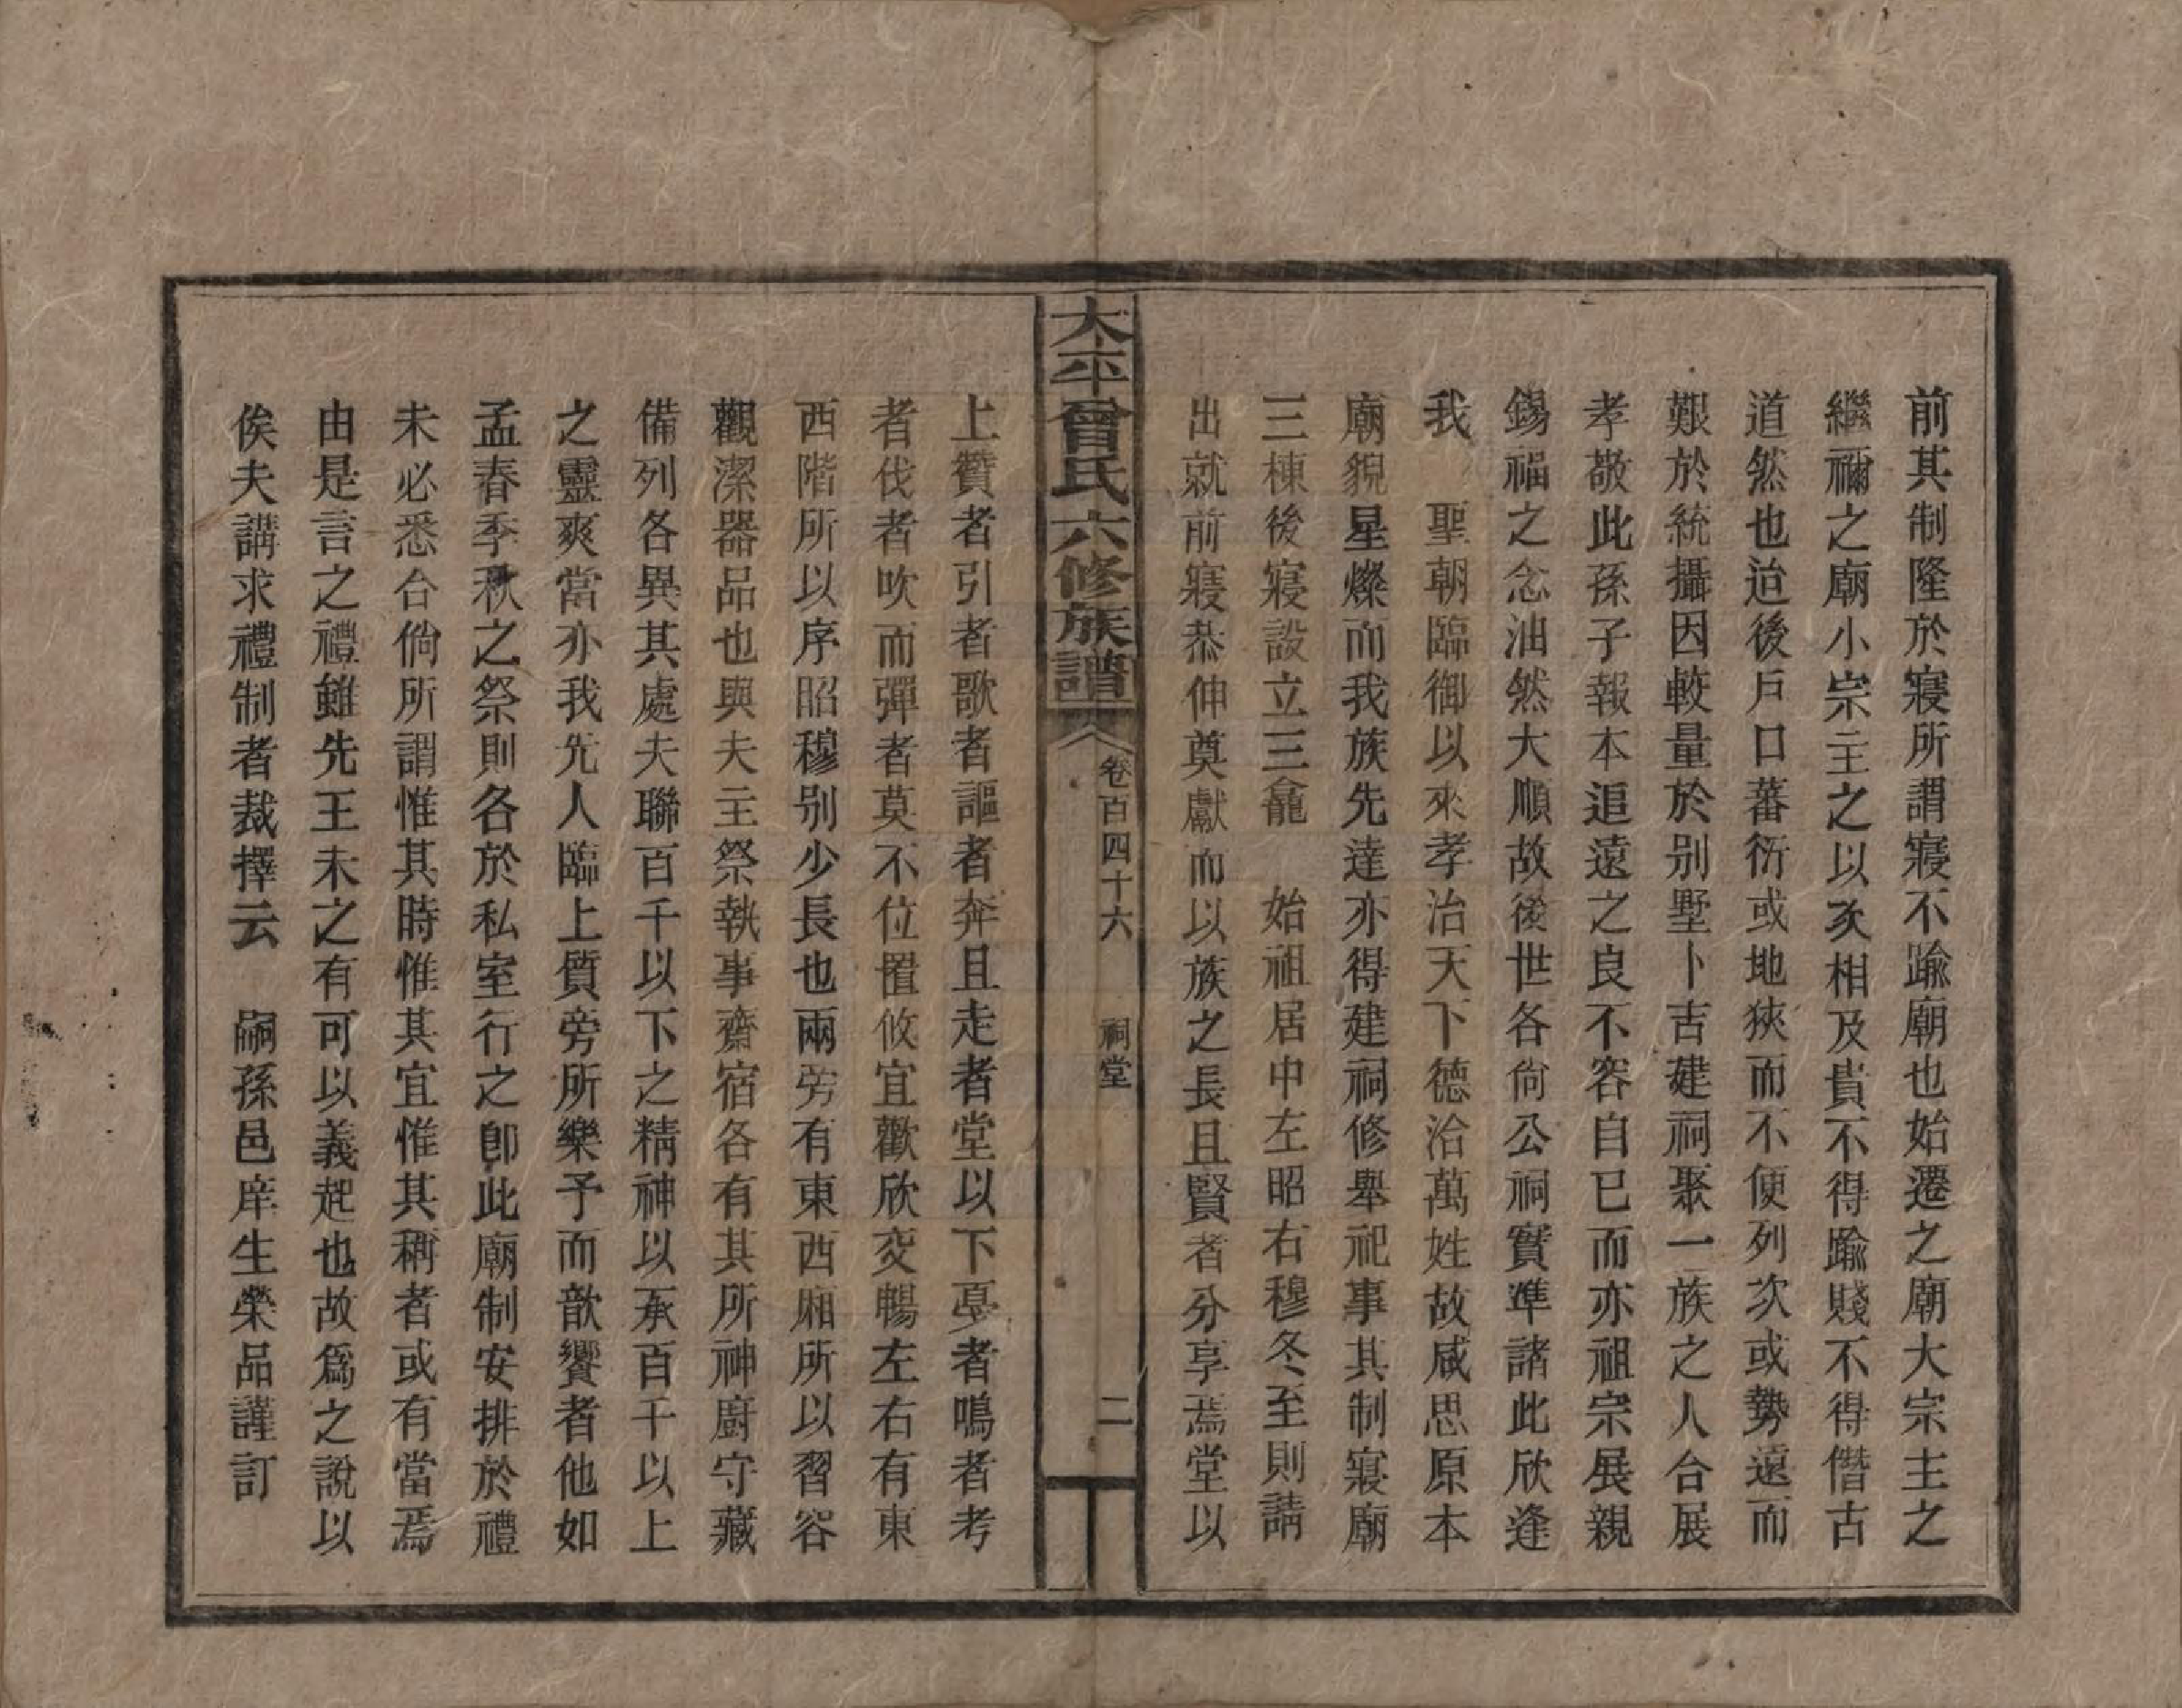 前其制隆於寢所謂寢不踰廟也始遷之廟大宗主之
繼禰之廟小宗主之以次相及貴不得踰賤不得僭古
道然也迨後戶口蕃衍或地狹而不便列次或勢遠而
艱於統攝因較量於别墅卜吉建祠聚一族之人合展
孝敬此孫子報本追遠之良不容自已而亦祖宗展親
錫福之念油然大順故後世各尚公祠實準諸此欣逢
我　聖朝臨御以來孝治天下德洽萬姓故咸思原本
廟貌星燦而我族先達亦得建祠修舉祀事其制寢廟
三棟後寢設立三龕　始祖居中左昭右穆冬至則請
出就前寢恭伸奠獻而以族之長且賢者分享焉堂以
太平曾氏六修族譜　卷百四十六　祠堂　二
上贊者引者歌者謳者奔且走者堂以下戞者鳴者考
者伐者吹而彈者莫不位置攸宜歡欣交暢左右有東
西階所以序昭穆别少長也兩旁有東西廂所以習容
觀潔器品也與夫主祭執事齋宿各有其所神廚守藏
備列各異其處夫聯百千以下之精神以承百千以上
之靈爽當亦我先人臨上質旁所樂予而歆饗者他如
孟春季秋之祭則各於私室行之卽此廟制安排於禮
未必悉合倘所謂惟其時惟其宜惟其稱者或有當焉
由是言之禮雖先王未之有可以義起也故爲之說以
俟夫講求禮制者裁擇云　嗣孫邑庠生榮品謹訂